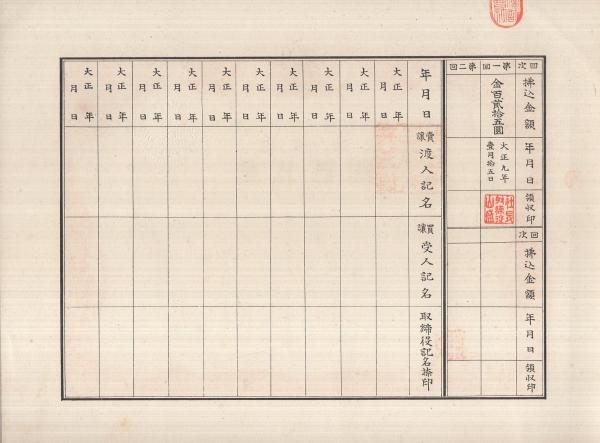 回次
第一回
第二回
拂込金額
金百貳拾五圓
年月日
大正九年
壹月拾五日
領収印
回次
拂込金額
年月日
領収印
年月日
賣讓渡人記名
買讓受人記名
取締役記名捺印
大正 年 月 日
大正 年 月 日
大正 年 月 日
大正 年 月 日
大正 年 月 日
大正 年 月 日
大正 年 月 日
大正 年 月 日
大正 年 月 日